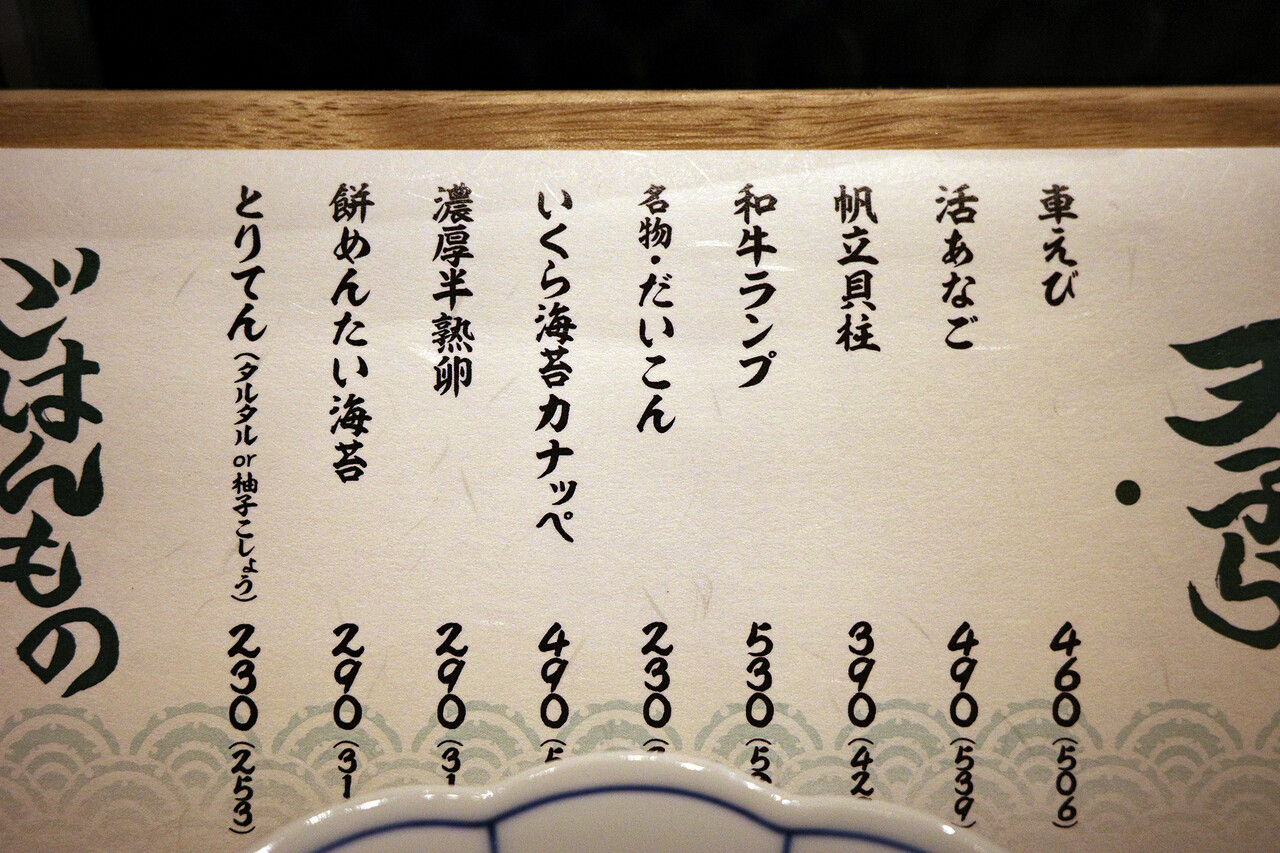 天ぷら
・
車えび 460(506)
活あなご 490(539)
帆立貝柱 390(42
和牛ランプ 530(5
名物・だいこん 230(
いくら海苔カナッペ 490(5
濃厚半熟卵 290(31
餅めんたい海苔 290(31
とりてん(タルタルor柚子こしょう) 230(253)
ごはんもの